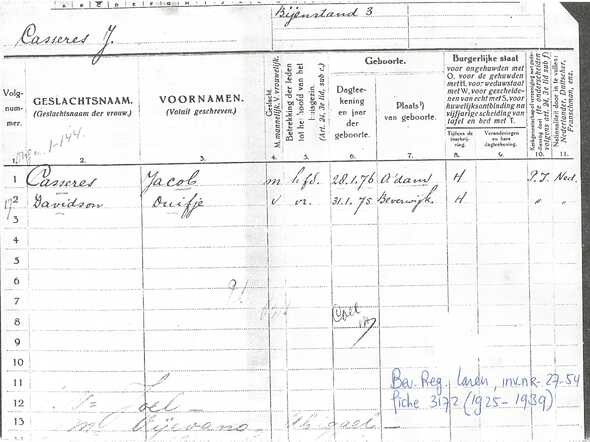 Bijenstand 3
Casseres J.
Volg-
nummer.
GESLACHTSNAAM.
(Geslachtsnaam der vrouw.)
VOORNAMEN.
(Voluit geschreven.)
Geslacht.
M. mannelijk, V. vrouwelijk.
Betrekking der leden
tot het hoofd van het
huisgezin.
(Art. 24, 3e lid, sub c.)
Geboorte.
Dagtee-
kening
en jaar
der
geboorte.
Plaats ¹)
van geboorte.
Burgerlijke staat
voor ongehuwden met
O. voor de gehuwden
met H. voor weduwstaat
met W, voor gescheide-
nen van echt met S, voor
huwelijksontbinding na
vijfjarige scheiding van
tafel en bed met T.
Tijdens de
inschrij-
ving.
Veranderingen
en hare
dagteekening.
Nationaliteit door in te vullen:
Nederlander, Duitscher,
Franschman, enz.
1. 2. 3. 4. 5. 6. 7. 8. 9. 10. 11.
1-144
1 Casseres Jacob m hfd. 28.1.76 A'dam H P.I. Ned.
2 Davidson Duifje v vr. 31.1.75 Beverwijk H " "
3
4
5
6
7
8
9
10
11
12 Joel
13
Bev. Reg. Laren, inv.nr. 27-54
fiche 3172 (1925-1939)